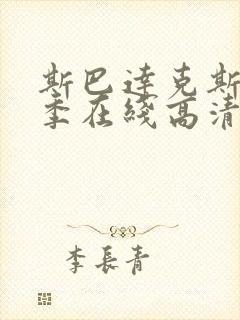 斯巴達克斯
季在綫高清
李長青